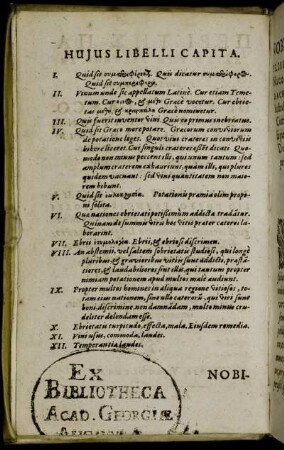 HUJUS LIBELLI CAPITA.
I. Quid sit Quis dicatur
Quid sit
II. Vinum unde sic appellatum Latinè. Cur etiam Temetum.
Cur & Græcè vocetur. Cur ebrietas
& Græcè nominetur.
III. Quis fuerit inventor vini. Quis vino primus inebriatus.
IV. Quid sit Græco more potare. Græcorum conviviorum
de potatione leges. Quot vires crateres in convivio
bibere liceret. Cur singulis crateres essent dicati. Quomodo
non minus peccent illi, qui unum tantùm sed
amplum craterem exhauriunt, quàm illi, qui plures
quidem vacuant: sed vini quantitatem non majorem
bibunt.
V. Quid sit Potationis præmia olim proponi
solita.
VI. Quæ nationes ebrietati potissimùm addictæ tradātur.
Quinam de summis viris hoc vitio præter cæteros laborarint.
VII. Ebrii Ebrii, & ebriosi discrimen.
VIII. An abstemii, vel saltem ebrietatis studiosi, qui longè
pluribus & gravioribus vitiis sunt addicti, præstātiores,
& laudabiliores sint illis, qui tantùm propter
nimiam potationem apud multos malè audiunt.
IX. Propter multos homines in aliqua regione vitiosos, totam
eius nationem, sine ullo cæterorū, qui viri sunt
boni, discrimine non damnādam, multo minus crudeliter
delendam esse.
X. Ebrietatis turpitudo, effecta, mala. Eiusdem remedia.
XI. Vini usus, commoda, laudes.
XII. Temperantiæ laudes.
NOBI-
EX
BIBLIOTHECA
ACAD. GEORGIÆ